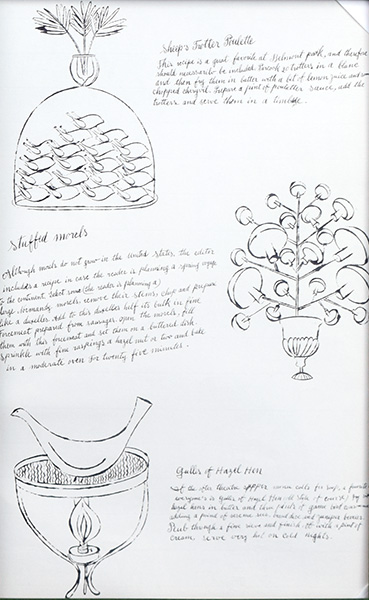 Sheep's Trotter Poulette
This recipe is a great favorite at Belmont park, and therefore
should necessarily be included. Precook 20 trotters in a blanc
and then fry them in butter with a bit of lemon juice and some
chopped chervil. Prepare a pint of poulette sauce, add the
trotters and serve them in a timbale.
Stuffed morels
Although morels do not grow in the United States, the editor
includes a recipe in case the reader is planning a spring voyage
to the continent. Select some (the reader is planning a)
large Normandy morels, remove their stems, chop and prepare
like a duxelles. Add to this duxelles half its bulk in fine
forcemeat prepared from sausages. Open the morels, fill
them with this forcemeat and set them on a buttered dish.
Sprinkle with fine raspings a hazel nut or two and bake
in a moderate oven for twenty five minutes.
Gullss of Hazel Hen
If the after theatre supper menu calls for soup, a favorite
everyone's is Gullss of Hazel Hen. Fry
hazel hens in butter and then pints of game
adding a pound of sesame and juniper berries.
Rub through a fine sieve and finish it with a pint of
cream. Serve very hot on cold nights.